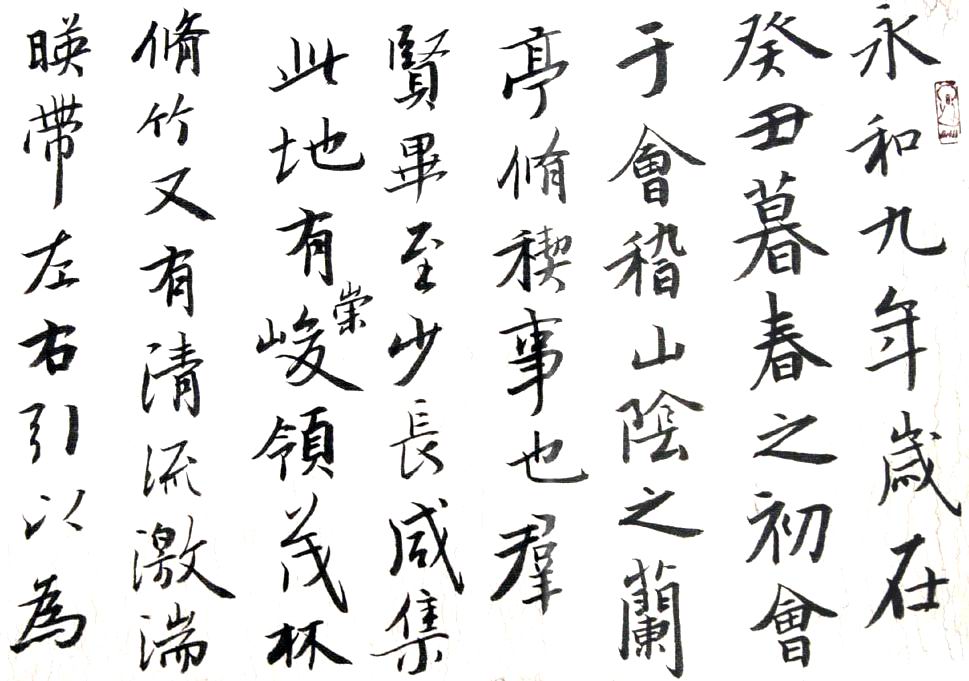 永和九年歲在
癸丑暮春之初會
于會稽山陰之蘭
亭脩稧事也群
賢畢至少長咸集
此地有崇峻領茂林
脩竹又有清流激湍
暎帶左右引以為